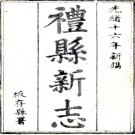 光緒十六年新鐫
禮縣新志
板存縣署